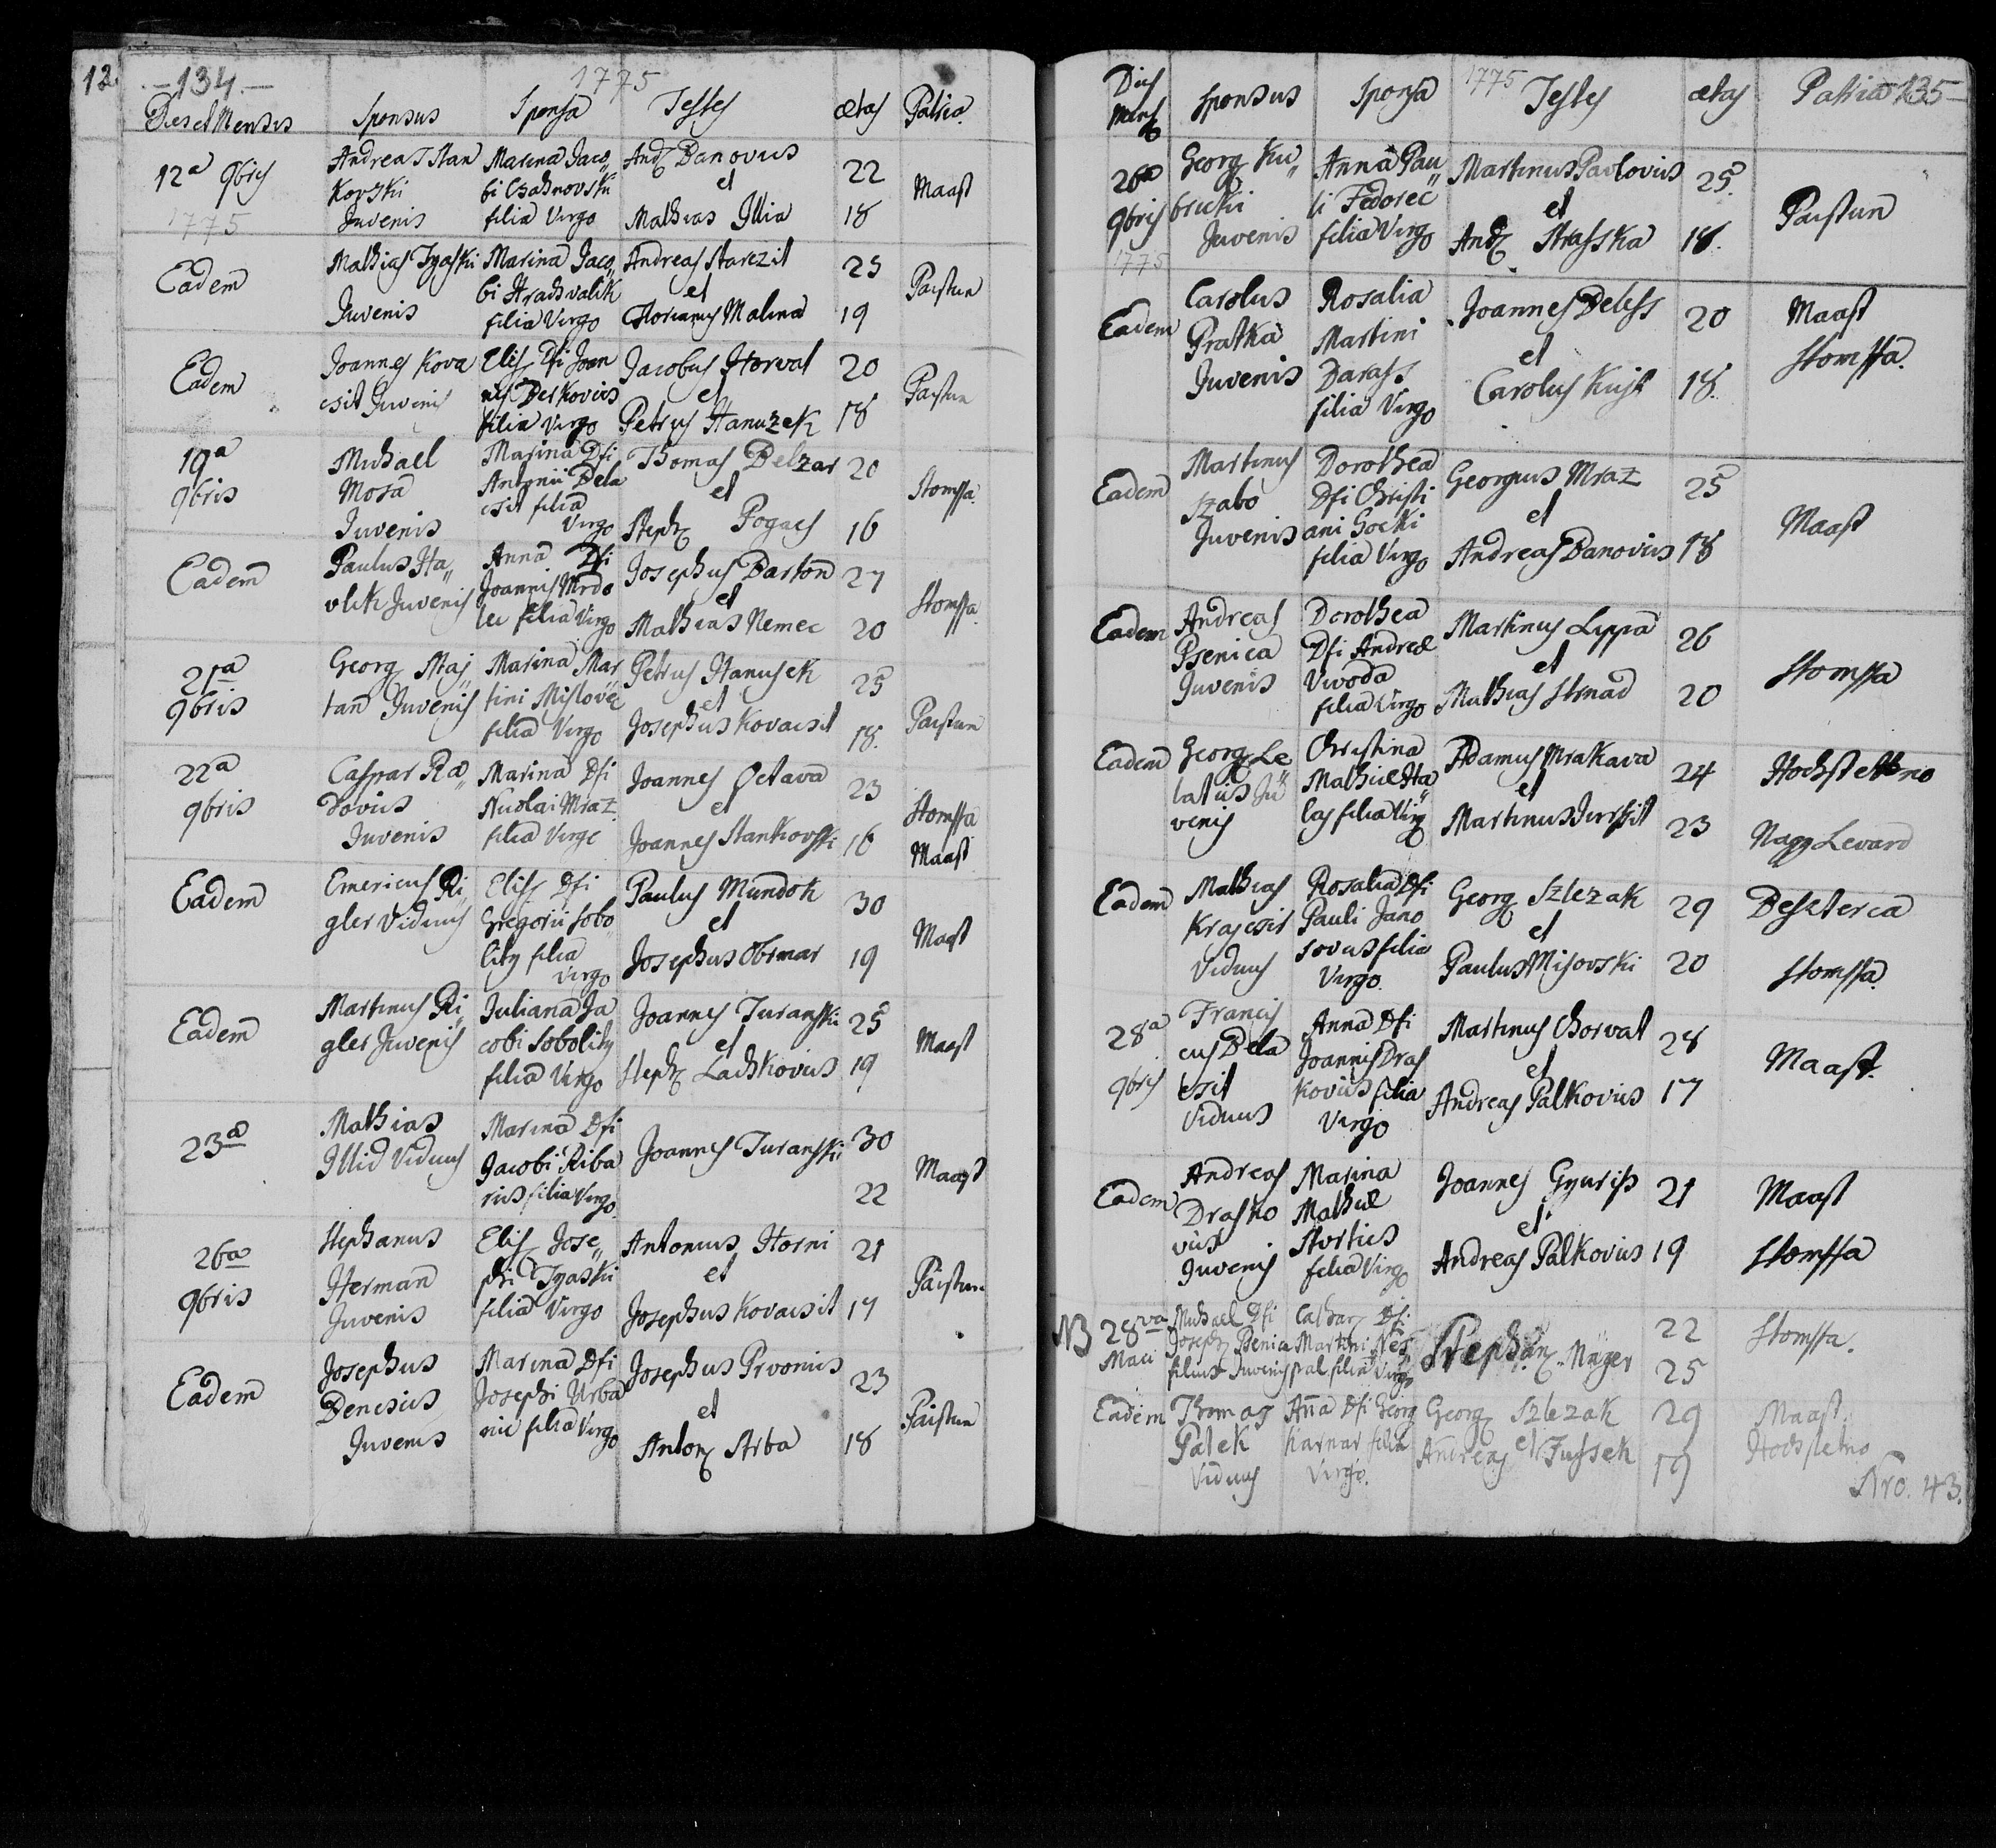 12.
-134.-
1775
Dies et Mensis Sponsus Sponsa Testes ætas Patria
12a 9bris
1775
Andreas Stan
kovski
Juvenis
Marina Jaco„
bi Csahnovski
filia Virgo
And. Danovius
et
Mathias Illia
22
18
Maast
Eadem
Mathias
Juvenis
Marina Jaco„
bi Hradsvalik
filia Virgo
Andreas Starezit
et
Florianus Malina
25
19
Paistun
Eadem
Joannes Kova
csit Juvenis
Elis. Dfi Joan
nis Deskovits
filia Virgo
Jacobus Horvat
et
Petrus Hanuzek
20
18
Paistun
19a
9bris
Michael
Mosa
Juvenis
Marina Dfi
Antonii Dela
csit filia
Virgo
Thomas Belzar
et
Steph. Pogacs
20
16
Stompfa
Eadem
Paulus Ha„
vlik Juvenis
Anna Dfi
Joannis Mrdo
lec filia Virgo
Josephus Barton
et
Mathias Nemec
27
20
Stompfa
21a
9bris
Georg. Maj„
tan Juvenis
Marina Mar
tini Mislovec
filia Virgo
Petrus Hanusek
et
Josephus Kovacsit
25
18.
Paistun
22a
9bris
Caspar Ra„
dovius
Juvenis
Marina Dfi
Nicolai Mraz
filia Virgo
Joannes Octava
et
Joannes Stankovski
23
16
Stompfa
Maast
Eadem
Emericus Ri„
gler Viduus
Elis. Dfi
Gregorii Sobo
licy filia
Virgo
Paulus Mundok
et
Josephus Obrmar
30
19
Maast
Eadem
Martinus Ri„
gler Juvenis
Juliana Ja
cobi Sobolity
filia Virgo
Joannes Turanski
et
Steph. Lachkovius
25
19
Maast
23a
Mathias
Illia Viduus
Marina Dfi
Jacobi Riba
rius filia Virgo.
Joannes Turanski
30
22
Maast
26a
9bris
Stephanus
Herman
Juvenis
Elis. Jose„
phi
filia Virgo
Antonius Horni
et
Josephus Kovacsit
21
17
Paistun.
Eadem
Josephus
Denesius
Juvenis
Marina Dfi
Josephi Urba
nic filia Virgo
Josephus Prvonius
et
Anton. Strba
23
18
Paistun
Dies
Mens.
Sponsus Sponsa 1775 Testes ætas Patria 135-
26a
9bris
1775
Georg. Ku„
bricki
Juvenis
Anna Pau„
li Fedorec
filia Virgo
Martinus Pavlovius
et
And. Strasska
25.
18.
Paistun
Eadem
Carolus
Pratka
Juvenis
Rosalia
Martini
Darass
filia Virgo
Joannes Beless
et
Carolus
20
18.
Maast
Stompfa.
Eadem
Martinus
Szabo
Juvenis
Dorothea
Dfi Christi
ani Gocki
filia Virgo
Georgius Mraz
et
Andreas Danovius
25
18
Maast
Eadem
Andreas
Psenica
Juvenis
Dorothea
Dfi Andreæ
Vivoda
filia Virgo
Martinus Lippa
et
Mathias Strnad
26
20
Stompfa
Eadem
Georg. Le„
latiis Ju„
venis
Christina
Mathiæ Ha„
las filia Virg.
Adamus Mrakava
et
Martinus Jurssit
24
23
Hochstettno
Nagy Levard
Eadem
Mathias
Krajcsir
Viduus
Rosalia Dfi
Pauli Jano
sovits filia
Virgo.
Georg. Szlezak
et
Paulus Misovski
29
20
Beszterca
Stompfa.
28a
9bris
Francis
cus Dela
csit
Viduus
Anna Dfi
Joannis Dras
kovits filia
Virgo
Martinus Chorvat
et
Andreas Palkovius
28
17
Maast.
Eadem
Andreas
Drasko
vits
Juvenis
Marina
Mathiæ
Stortius
filia Virgo
Joannes Gyuriss
et
Andreas Palkovius
21
19
Maast
Stompfa
NB 28va
Maii
Michael Dfi
Joseph. Psenica
filius Juvenis
Cathar. Dfi
Martini Nes
pal filia Virgo
Stephan. Mayer
22
25
Stompfa.
Eadem
Thomas
Palek
Viduus
Anna Dfi Georg.
Karnar filia
Virgo.
Georg. Szlezak
et
Andreas Jussek
29
19
Maast.
Hochstetno
Nro. 43.